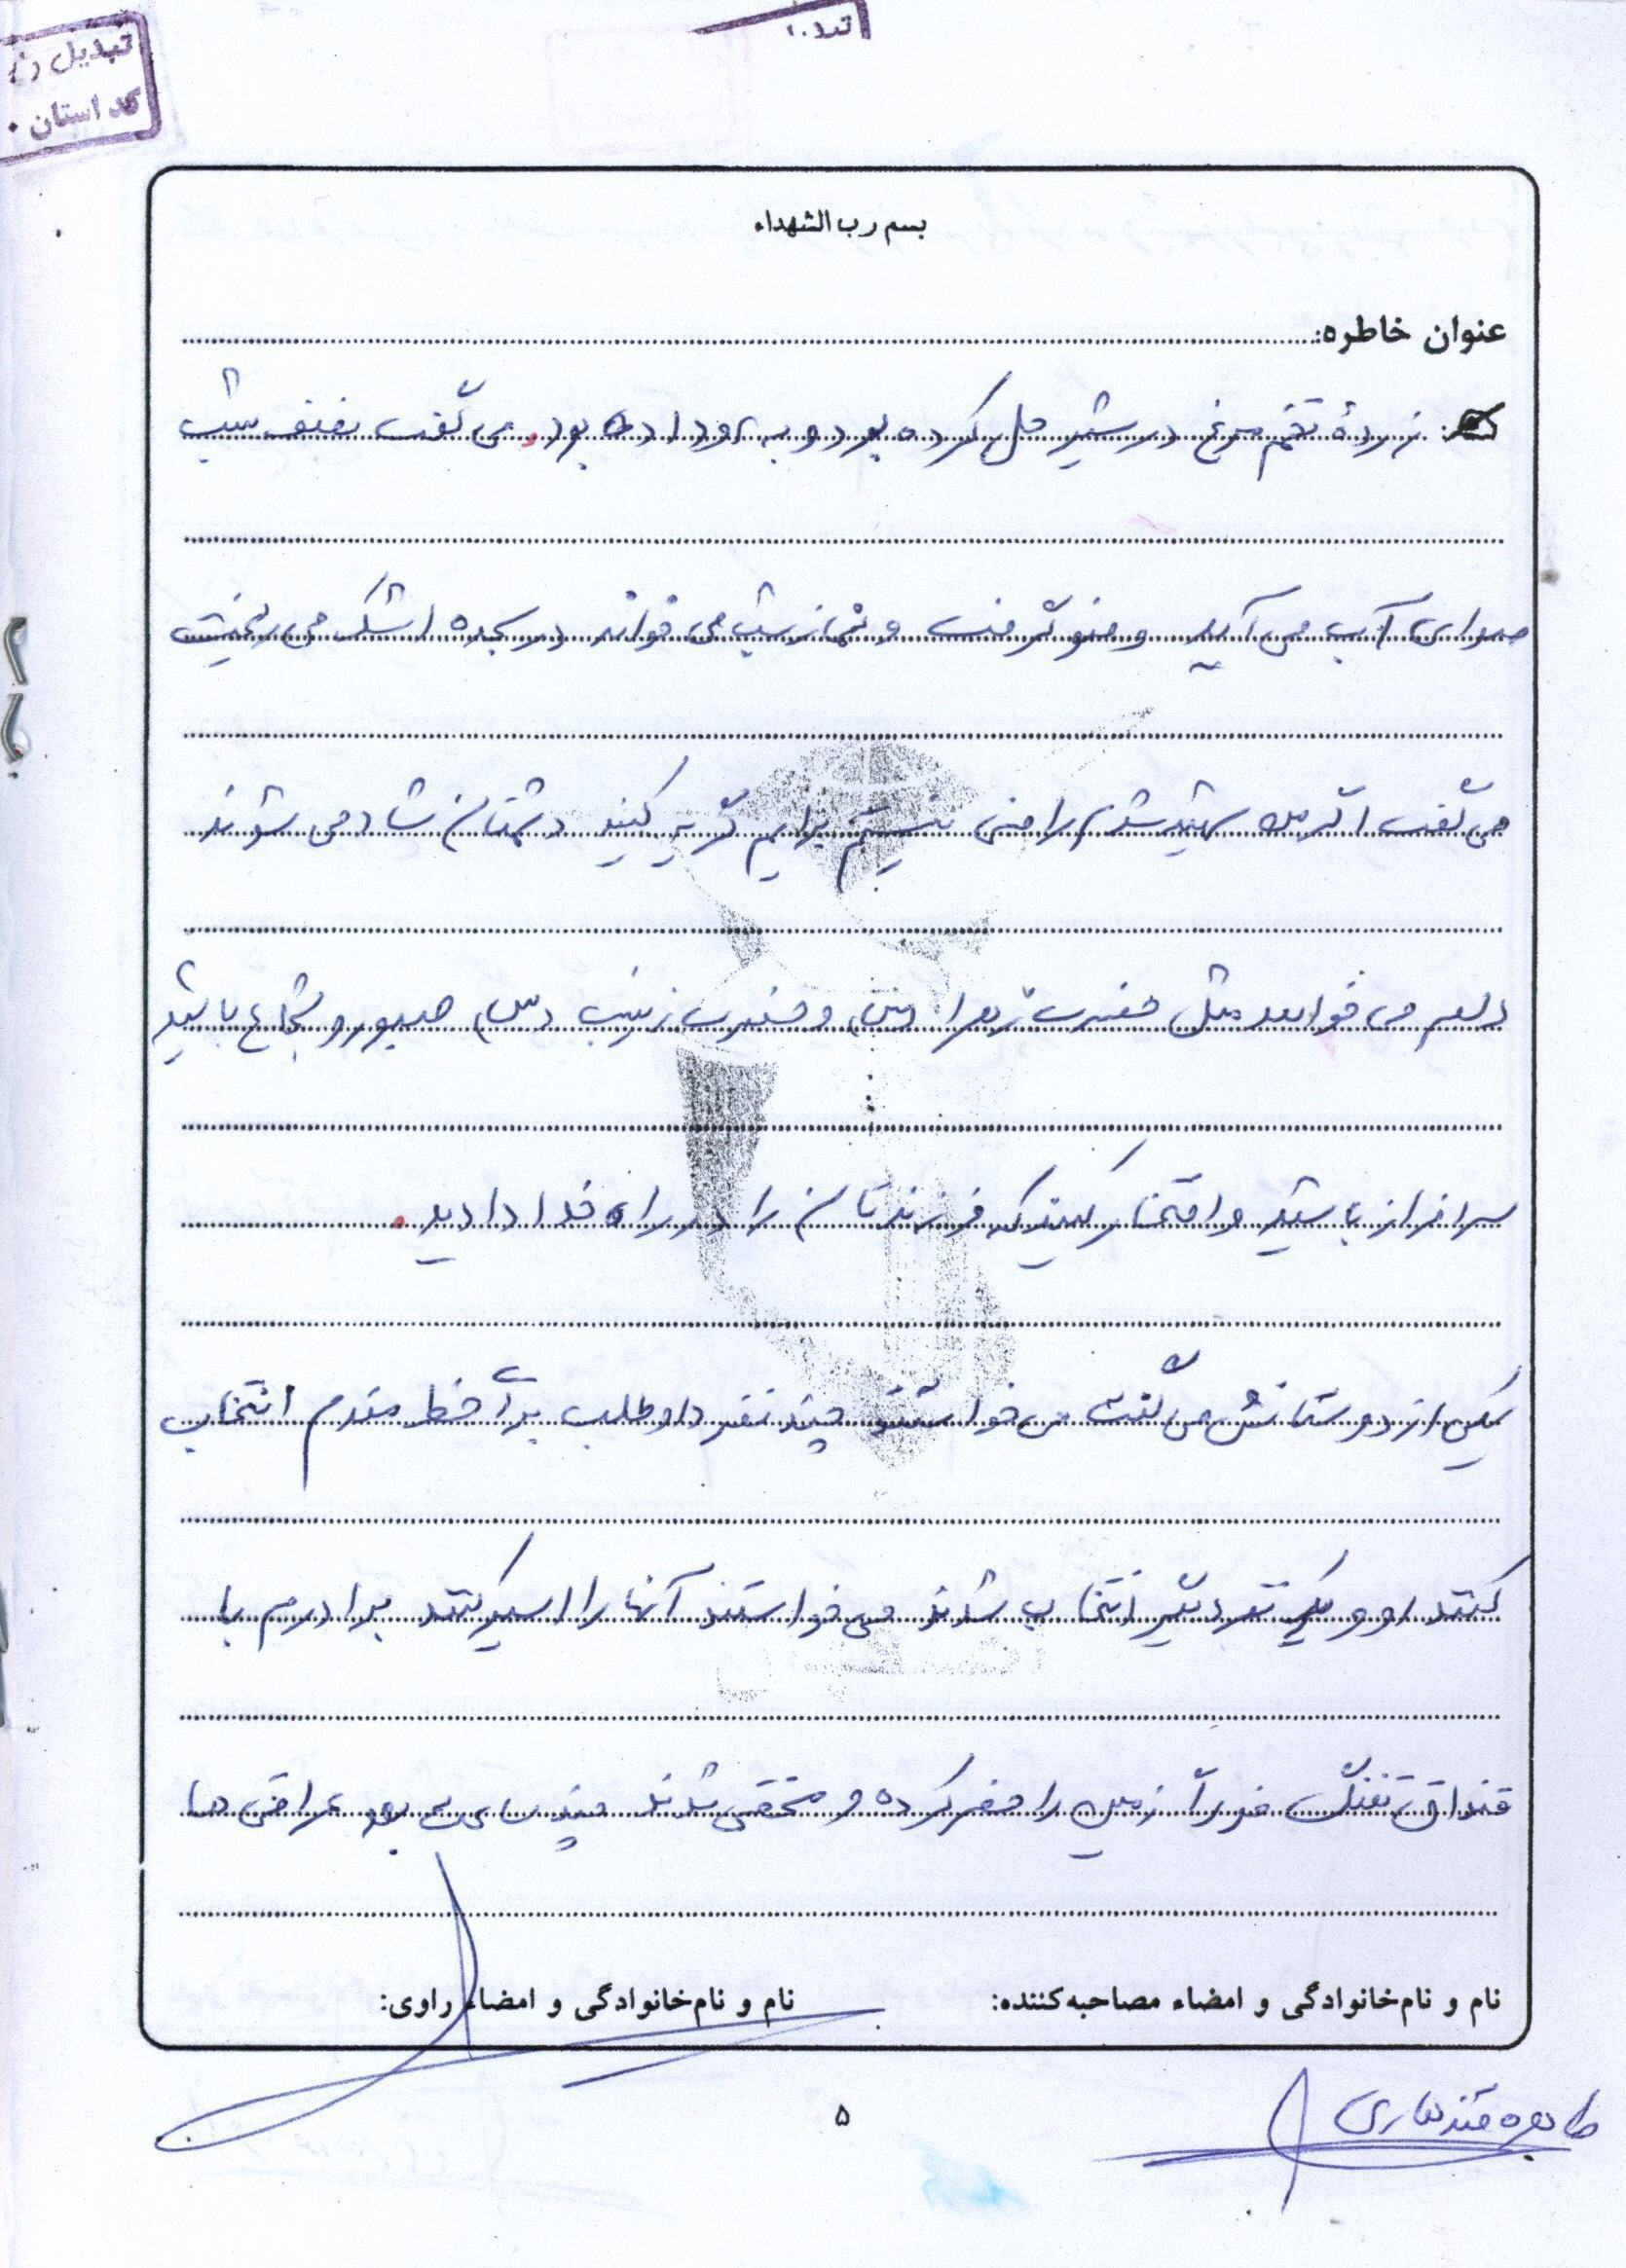 تبدیل
کد استان
بسم رب الشهداء
عنوان خاطره:
زردهٔ تخم مرغ در شیر حل کرده بود و به او داده بود. می گفت نصف شب
صدای آب می آید وضو گرفت و نماز شب می خواند در سجده اشک می ریخت
می گفت اگر من شهید شدم راضی نیستم برایم گریه کنید دشمنان شاد می شوند
دلم می خواهد مثل حضرت زهرا (س) و حضرت زینب (س) صبور و شجاع باشید
سرافراز باشید و افتخار کنید که فرزندتان را در راه خدا دادید.
یکی از دوستانش می گفت می خواستند چند نفر داوطلب برای خط مقدم انتخاب
کنند او و یک نفر دیگر انتخاب شدند می خواستند آنها را اسیر کنند برادرم با
قنداق تفنگ فوراً زمین را حفر کرده و مخفی شدند چند ساعت بعد عراقی ها
نام و نام‌خانوادگی و امضاء مصاحبه‌کننده: نام و نام‌خانوادگی و امضاء راوی:
طاهره قندهاری
۵